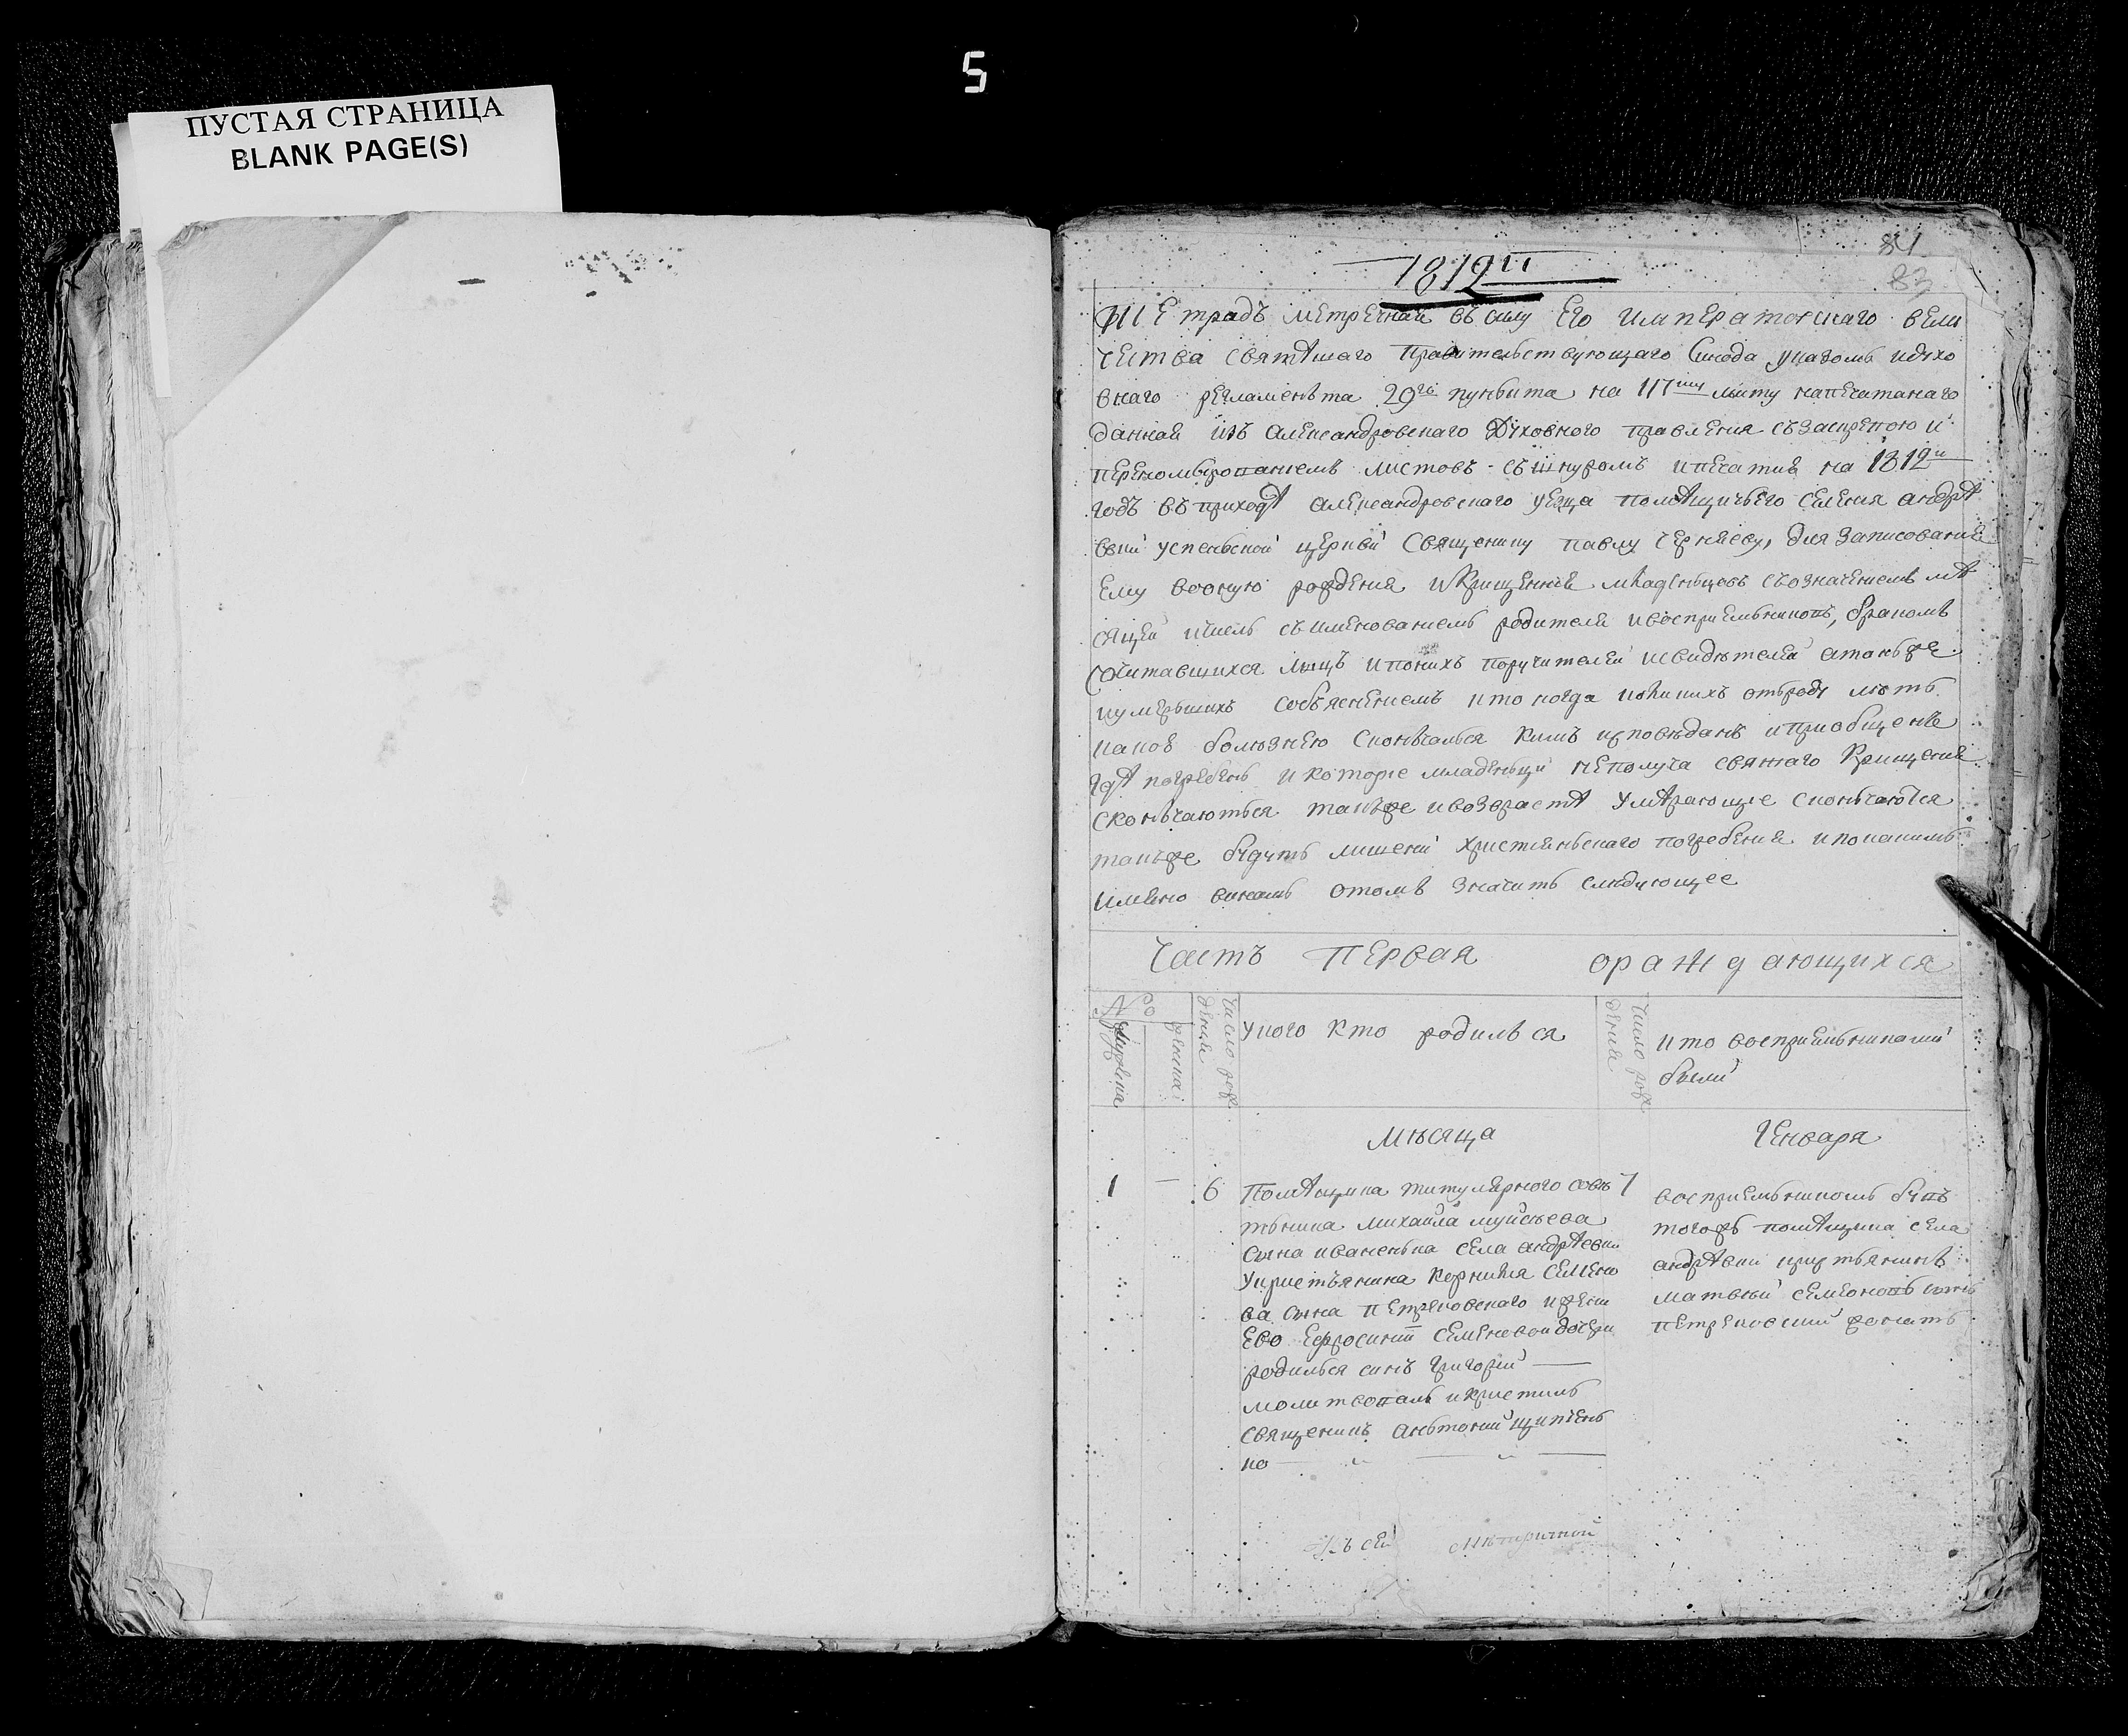 5
ПУСТАЯ СТРАНИЦА
BLANK PAGE(S)
84
83
1812й
Тетрадъ метречнаи въ силу Его Императорскаго вели
чества святѣшаго Правительствующаго Синода указомъ идухо
внаго регламеньта 29го пунькта на 117 листу напечатанаго
даннаи изъ Александровскаго Духовного правления съ заскрепою и
перономѣрованиемъ листовъ съ шнуромъ ипечатию на 1812й
годъ въ приходѣ Александровскаго уезда помѣщичьего селения андрѣ
вки успеньской церкви Священику павлу черняеву, для записования
ему вооную рождения и Крищения младеньцовъ съ означениемъ мѣ
сяцей ичисль съ именованиемъ родителей ивосприемьниковъ, бракомъ
сочитавшихся лицъ ипонихъ поручителей исвидѣтелей атакъже
иумершихъ собъяснениемъ кто когда отъроду лѣтъ
какою болѣзнею сконьчалься кимъ исповѣданъ иприобщенъ
гдѣ погребенъ и которые младеньци неполуча святаго Крищения
сконьчаються такъже ивозврастѣ умѣрающие
такъже будутъ лишени християньскаго погребения ипокакимъ
имено винамъ отомъ значитъ слѣдующее
Часть первая оражд ающихся
№
мужеска
женска
Число рож
дения
Укого кто родилься
Число рож
дения
кто восприемьниками
были
Мѣсяца Генваря
1 — 6 Помѣщика титулярного совѣ 7
тьника михаила
сына иваненька села андрѣевки
Укристьянина Корнилия семено
ва сына петреновского ижени
Ево Ефросинии семеновои дочери
родилься синъ григорий
молитвовалъ икристилъ
священикъ аньтоний
ко
восприемьникомъ билъ
тогожъ помѣщика села
андрѣвки кристьянинъ
матвѣй семеновъ синъ
петреновский женатъ
Къ сей метричной